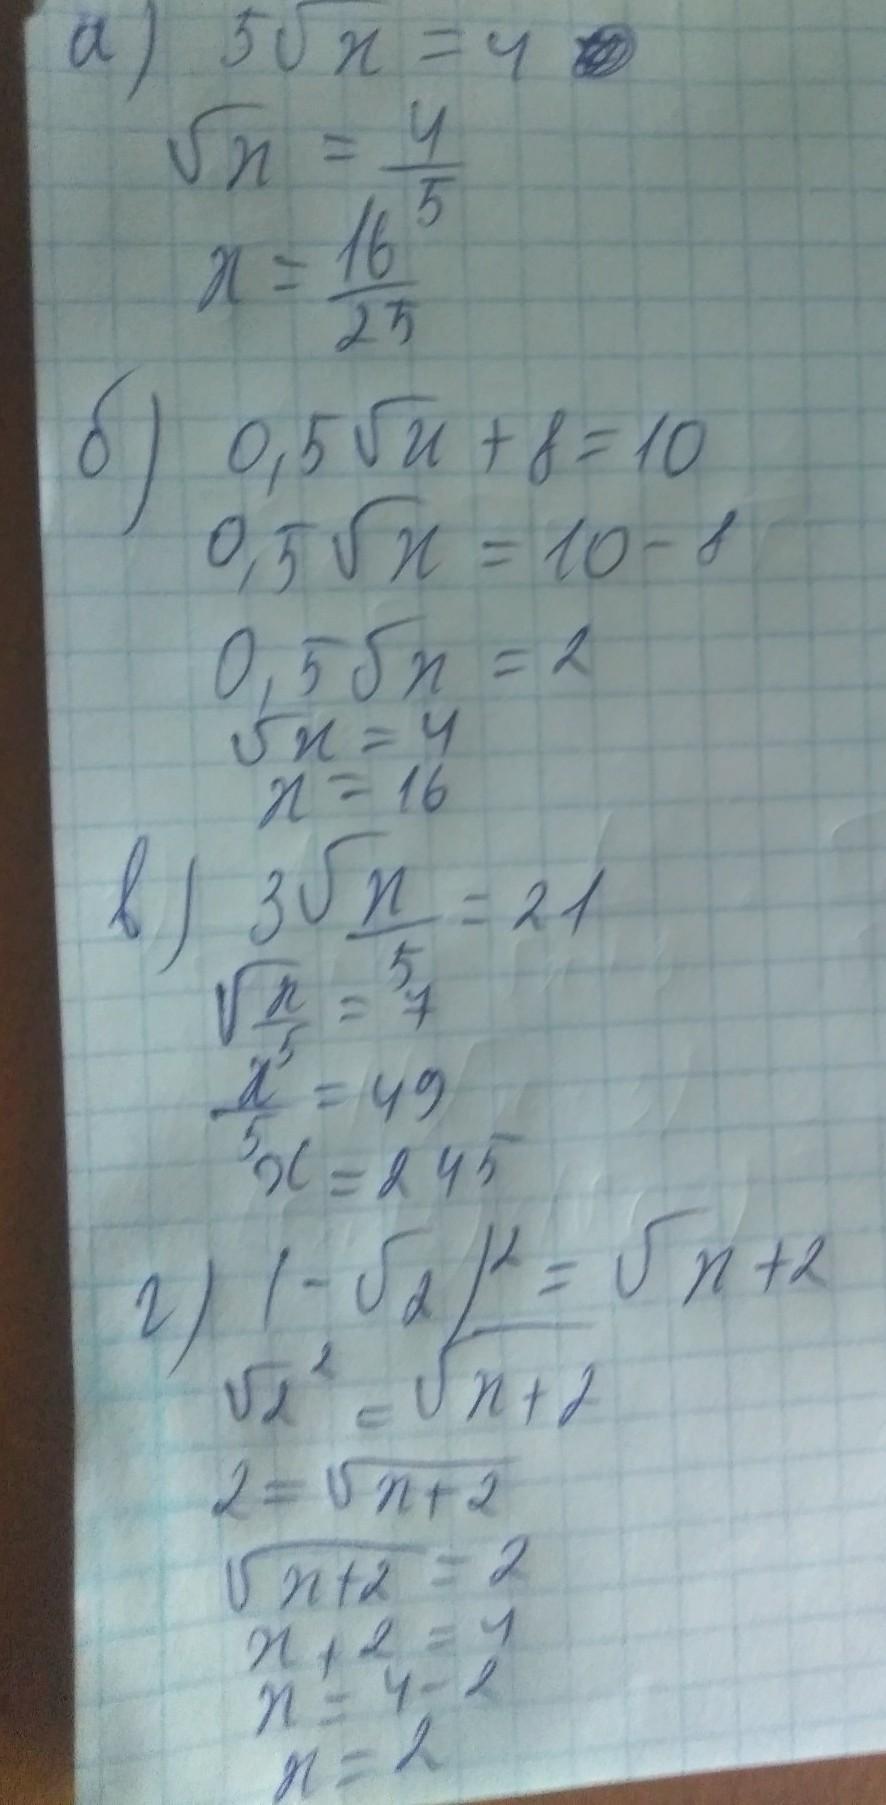 а) 5√x = 4
√x = 4/5
x = 16/25
б) 0,5√x + 8 = 10
0,5√x = 10 - 8
0,5√x = 2
√x = 4
x = 16
в) 3√x/5 = 21
√x/5 = 7
x/5 = 49
x = 245
г) (-√2)² = √x+2
√2² = √x+2
2 = √x+2
√x+2 = 2
x + 2 = 4
x = 4 - 2
x = 2